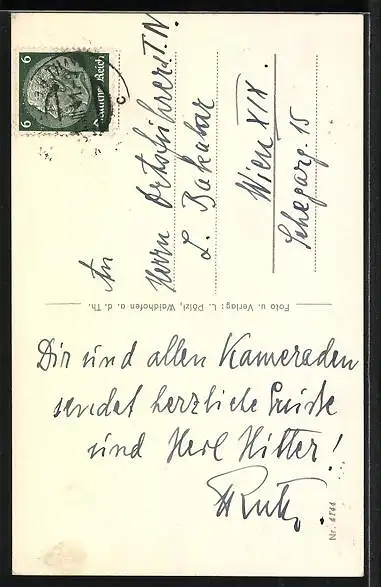 6 6
Deutsches Reich
An
Herrn Ortsführer d. T. N.
L. Bakabar
Wien XIX.
15
Foto u. Verlag: L. Pölzl, Waidhofen a. d. Th.
Dir und allen Kameraden
sendet herzliche Grüße
und Heil Hitler!
Nr. 4144